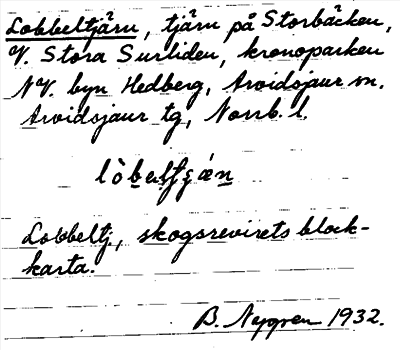 Lobbeltjärn, tjärn på Storbäcken,
V. Stora Surliden, kronoparken
NV. byn Hedberg, Arvidsjaur sn.
Arvidsjaur tg, Norrb. l.
Lobbeltj., skogsrevirets block-
karta.
B. Nygren 1932.